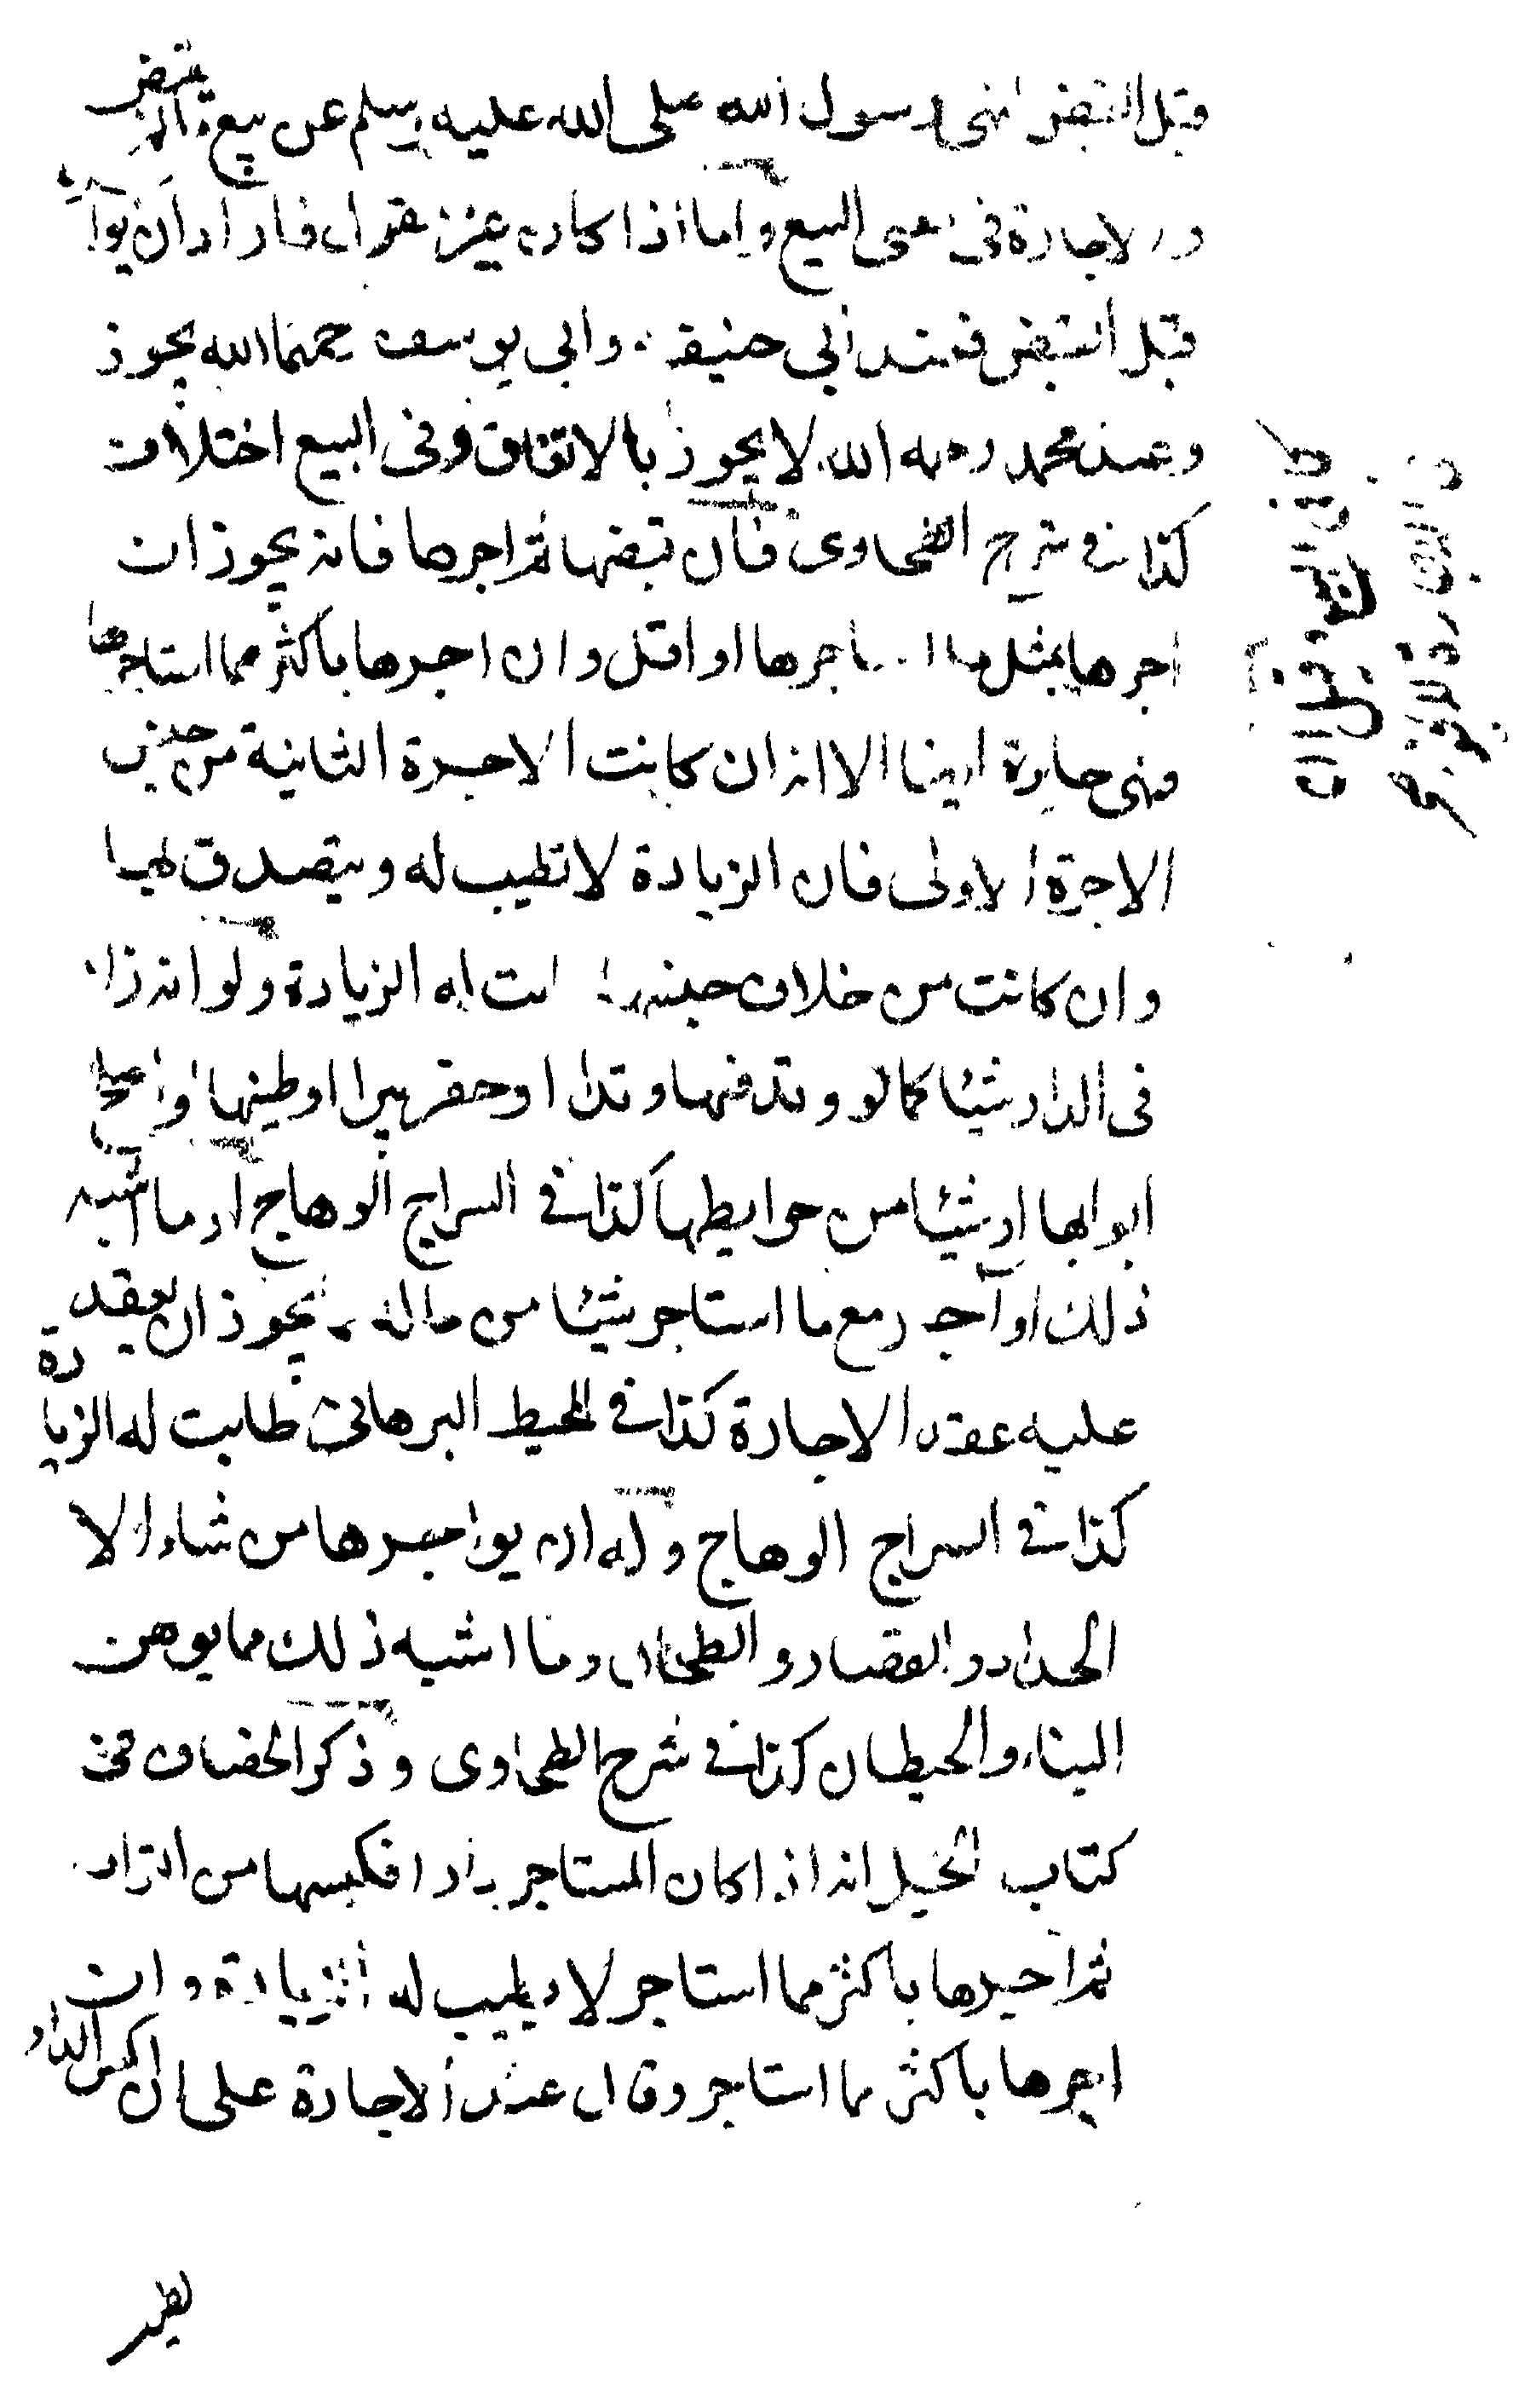 قبل القبض نهى رسول الله صلى الله عليه وسلم عن بيع ما لم يقبض
والاجارة في معنى البيع واما اذا كان غير منقول فاراد ان يواجر
قبل القبض فعند ابي حنيفة وابي يوسف رحمهما الله يجوز
وعند محمد رحمه الله لا يجوز بالاتفاق وفي البيع اختلاف
كذا في شرح الطحاوى فان قبضها ثم اجرها فانه يجوز ان
اجرها بمثل ما استاجرها او اقل وان اجرها باكثر مما استاجرها
فهى جايزة ايضا الا انه ان كانت الاجرة الثانية من جنس
الاجرة الاولى فان الزيادة لا تطيب له ويتصدق بها
وان كانت من خلاف جنسها طابت له الزيادة ولو انه زاد
في الدار شيئا كما لو وتد فيها وتدا او حفر بيرا او طينها او اصلح
ابوابها او شيئا من حوايطها كذا في السراج الوهاج او ما اشبه
ذلك او آجر مع ما استاجر شيئا من ماله يجوز ان يعقد
عليه عقد الاجارة كذا في المحيط البرهاني طابت له الزيادة
كذا في السراج الوهاج وله ان يواجرها من شاء الا
الحداد والقصار والطحان وما اشبه ذلك مما يوهن
البناء والحيطان كذا في شرح الطحاوى وذكر الخصاف في
كتاب الحيل انه اذا كان المستاجر دارا فكنسها من التراب
ثم اجرها باكثر مما استاجر لا يطيب له الزيادة وان
اجرها باكثر مما استاجر وقال عند الاجارة على ان اكنس الدار